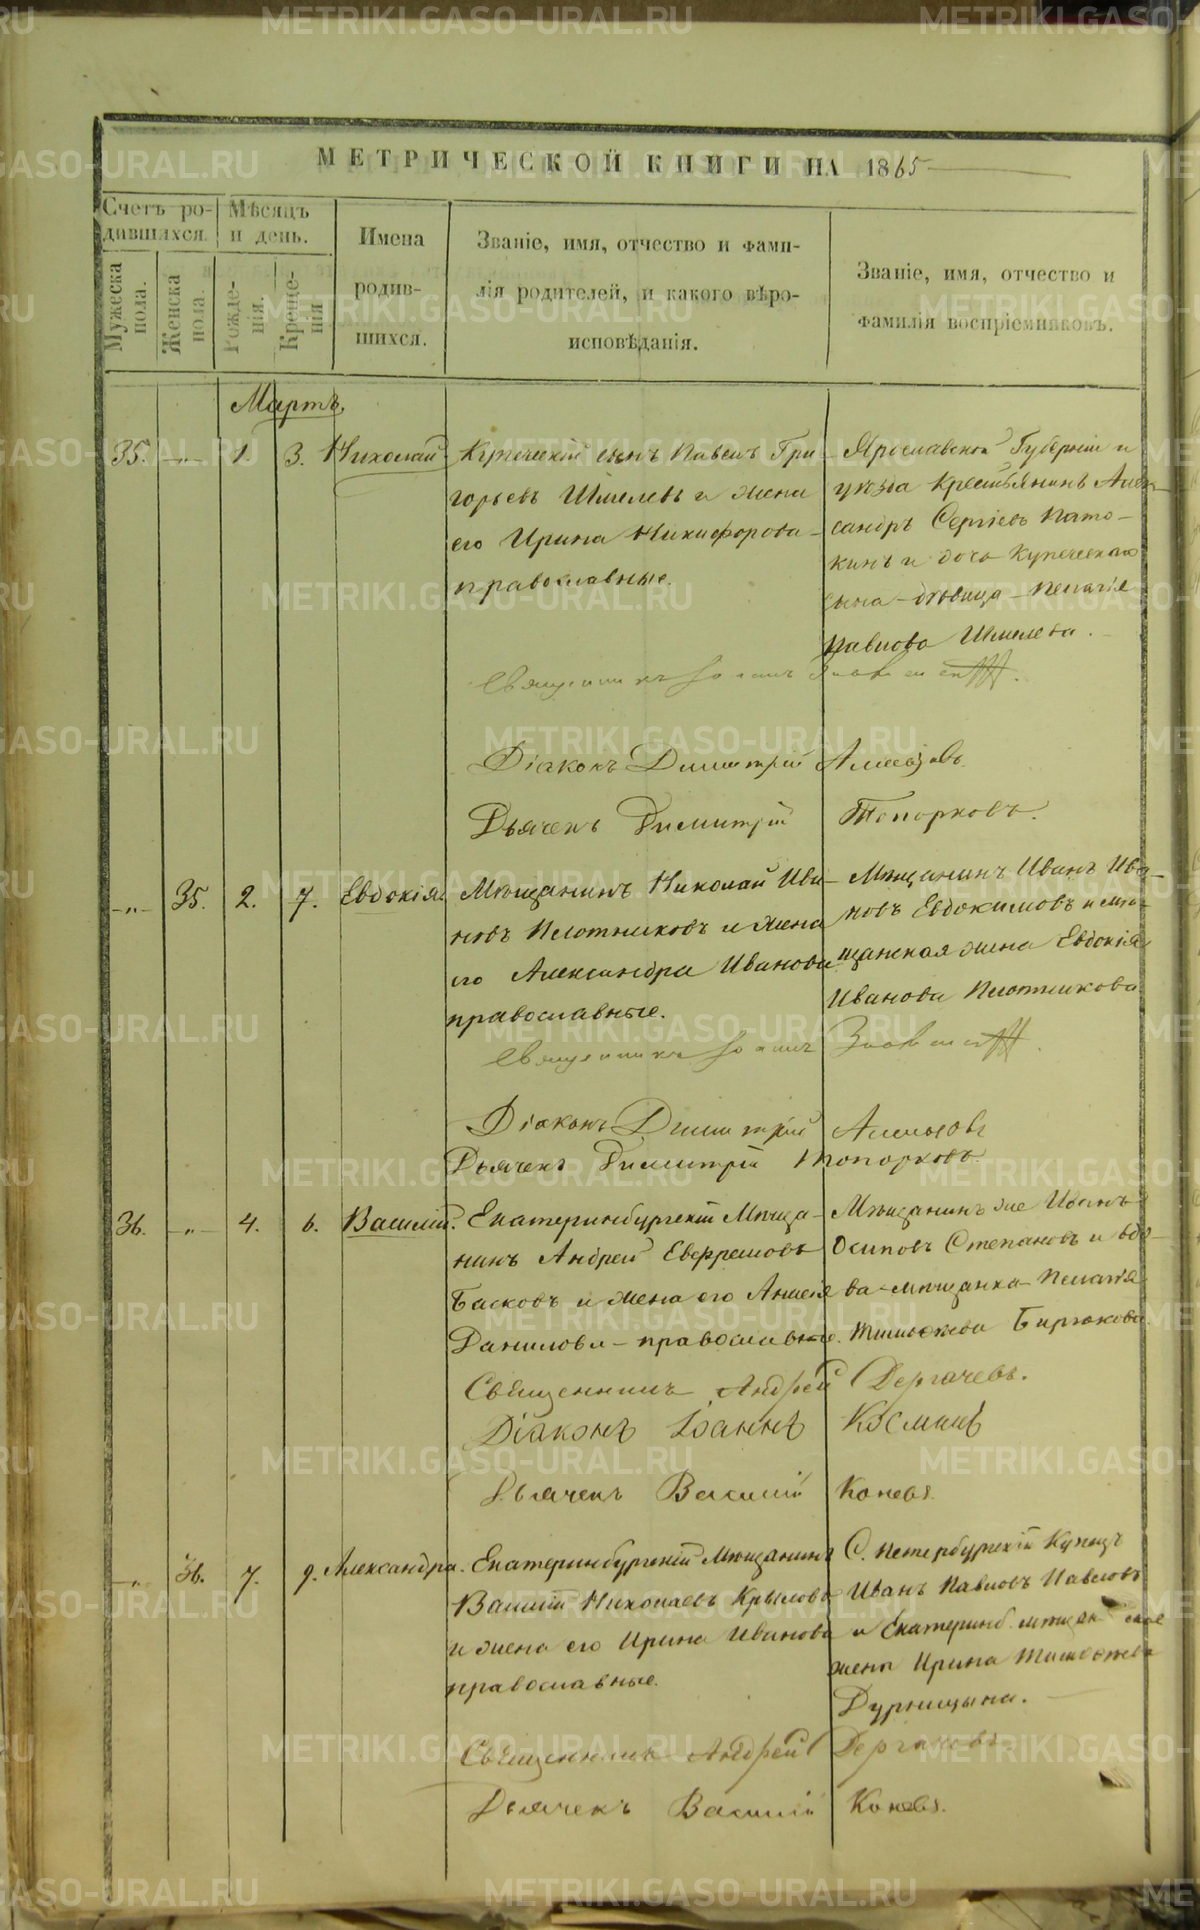 МЕТРИЧЕСКОЙ КНИГИ НА 1865
Счетъ ро-
дившихся.
Мѣсяцъ
и день.
Мужеска пола.
Женска пола.
Рожде-
нія.
Креще-
нія
Имена
родив-
шихся.
Званіе, имя, отчество и фами-
лія родителей, и какого вѣро-
исповѣданія.
Званіе, имя, отчество и
фамилія воспріемниковъ.
Мартъ.
35. -"- 1. 3. Николай
Купеческій сынъ Павелъ Гри
горьевъ Шмелевъ и жена
его Ирина Никифорова
православные.
Ярославской Губерніи и
уѣзда крестьянинъ Алек-
сандръ Сергіевъ Пато-
кинъ и дочь Купеческаго
сына - дѣвица - Пелагія
Павлова Шмелева.
Священникъ Іоаннъ
Діаконъ Димитрій
Дьячекъ Димитрій Топорковъ.
-"- 35. 2. 7. Евдокія.
Мѣщанинъ Николай Ива-
новъ Плотниковъ и жена
его Александра Иванова
православные.
Мѣщанинъ Иванъ Ива-
новъ Евдокимовъ и мѣ-
щанская жена Евдокія
Иванова Плотникова
Священникъ Іоаннъ
Діаконъ Димитрій
Дьячекъ Димитрій Топорковъ.
36. -"- 4. 6. Василій.
Екатеринбургскій Мѣща-
нинъ Андрей Евфремовъ
Басковъ и жена его Анисія
Данилова - православные.
Мѣщанинъ же Иванъ
Осиповъ Степановъ и вдо-
ва - мѣщанка - Пелагія
Тимофеева Бирюкова.
Священникъ Андрей Дергачевъ.
Діаконъ Іоаннъ
Дьячекъ Василій Коневъ.
-"- 36. 7. 9. Александра.
Екатеринбургскій мѣщанинъ
Василій Николаевъ Крыловъ
и жена его Ирина Иванова
православные.
С. Петербургскій Купецъ
Иванъ Павловъ Павловъ
и Екатеринб. мѣщанская
жена Ирина Тимофеева
Дурницына.
Священникъ Андрей Дергачевъ.
Дьячекъ Василій Коневъ.
METRIKI.GASO-URAL.RU